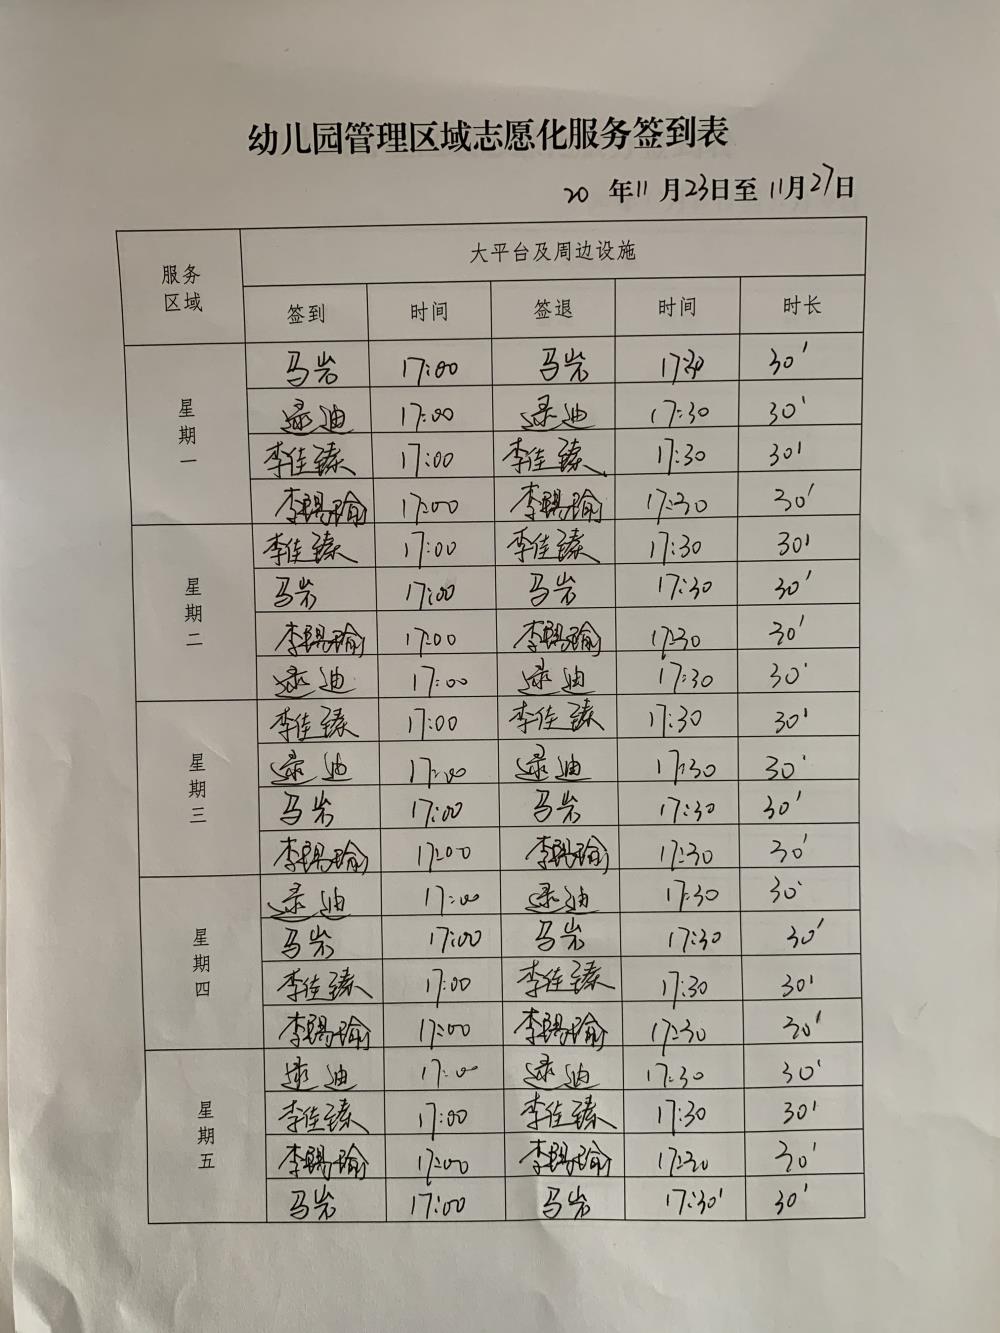 幼儿园管理区域志愿化服务签到表
20 年 11 月 23日至 11月27日
服务区域 大平台及周边设施
签到 时间 签退 时间 时长
星期一
马岩 17:00 马岩 17:30 30'
逯迪 17:00 逯迪 17:30 30'
李佳臻 17:00 李佳臻 17:30 30'
17:00 17:30 30'
星期二
李佳臻 17:00 李佳臻 17:30 30'
马岩 17:00 马岩 17:30 30'
17:00 17:30 30'
逯迪 17:00 逯迪 17:30 30'
星期三
李佳臻 17:00 李佳臻 17:30 30'
逯迪 17:00 逯迪 17:30 30'
马岩 17:00 马岩 17:30 30'
17:00 17:30 30'
星期四
逯迪 17:00 逯迪 17:30 30'
马岩 17:00 马岩 17:30 30'
李佳臻 17:00 李佳臻 17:30 30'
17:00 17:30 30'
星期五
逯迪 17:00 逯迪 17:30 30'
李佳臻 17:00 李佳臻 17:30 30'
17:00 17:30 30'
马岩 17:00 马岩 17:30' 30'